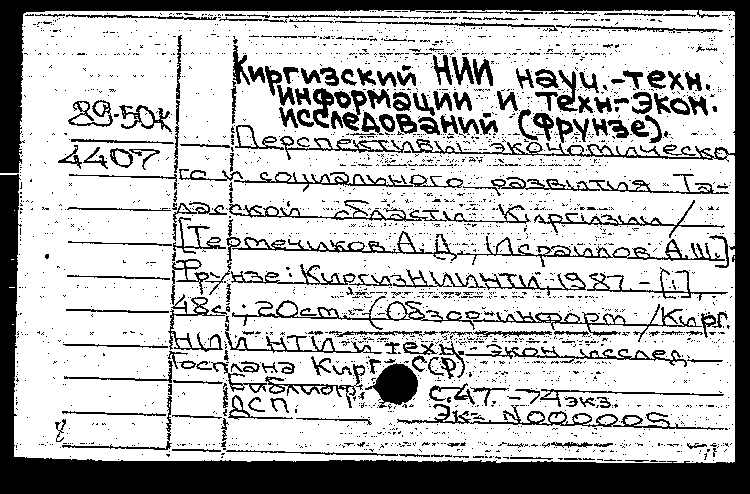 Киргизский НИИ науч.-техн.
информации и техн.-экон.
исследований (Фрунзе).
89-50к
4407
Перспективы экономическо-
го и социального развития Та-
ласской области Киргизии /
[Тертечиков А.Д., Исраилов А.Ш.].-
Фрунзе: КиргизНИИНТИ, 1987. - [1],
48с.; 20см. - (Обзор. информ. / Кирг.
НИИ НТИ и техн.-экон. исслед.
Госплана Кирг. ССР).
Библиогр.: с.47. - 74экз.
ДСП. Экз. N000005.
8